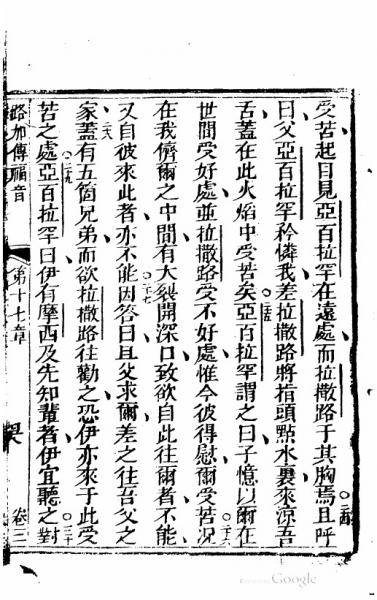 受苦起目見亞百拉罕在遠處而拉撒路于其胸焉且呼
○二四
曰父亞百拉罕矜憐我差拉撒路將指頭點水裏來涼吾
舌蓋在此火焰中受苦矣亞百拉罕謂之曰子憶以爾在
○二五
世間受好處並拉撒路受不好處惟今彼得慰爾受苦況
○二六
在我儕爾之中間有大裂開深口致欲自此往爾者不能
又自彼來此者亦不能因答曰且父求爾差之往吾父之
○二七
家蓋有五箇兄弟而欲拉撒路往勸之恐伊亦來于此受
二八
苦之處亞百拉罕曰伊有摩西及先知輩者伊宜聽之對
○二九
○三十
路加傳福音
第十七章
卷三
Google